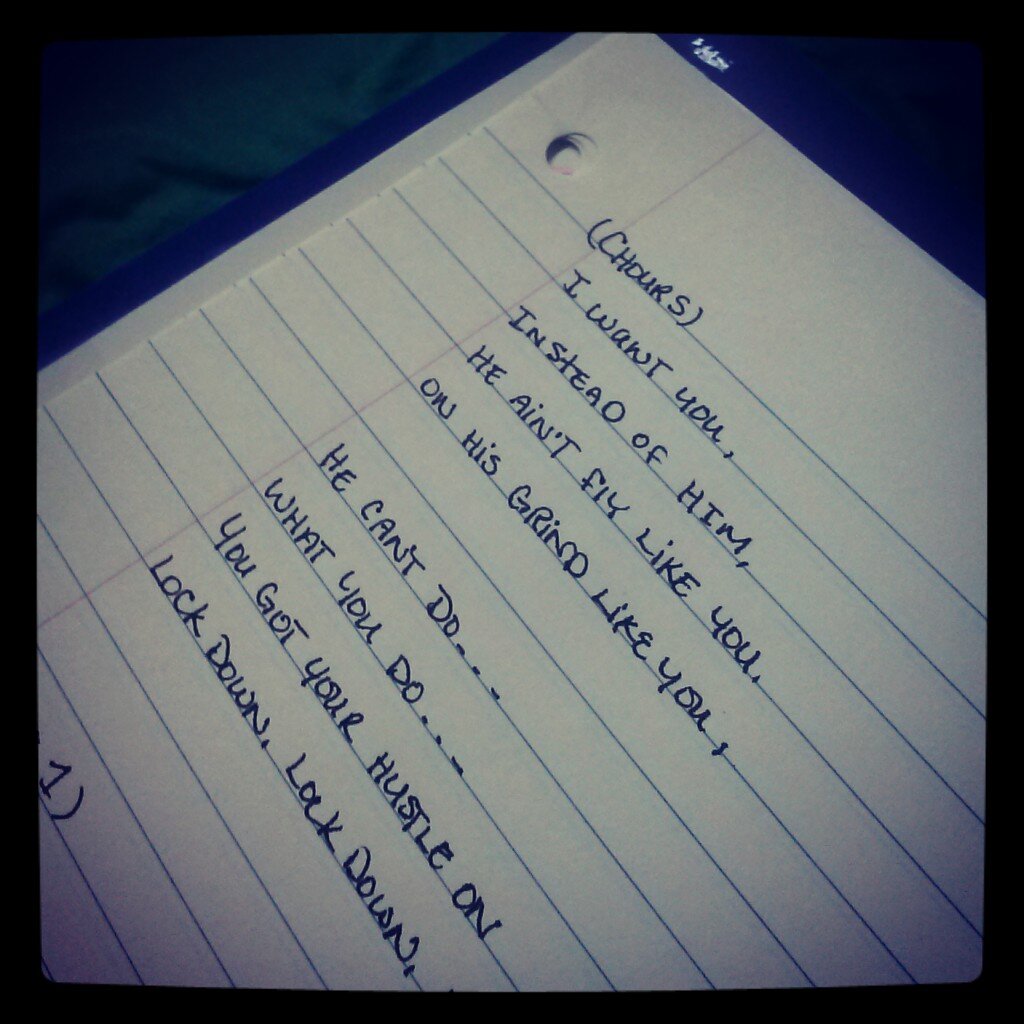 (CHOURS)
I WANT YOU,
INSTEAD OF HIM,
HE AIN'T FLY LIKE YOU.
ON HIS GRIND LIKE YOU,
HE CAN'T DO...
WHAT YOU DO...
YOU GOT YOUR HUSTLE ON
LOCK DOWN, LOCK DOWN,
1)